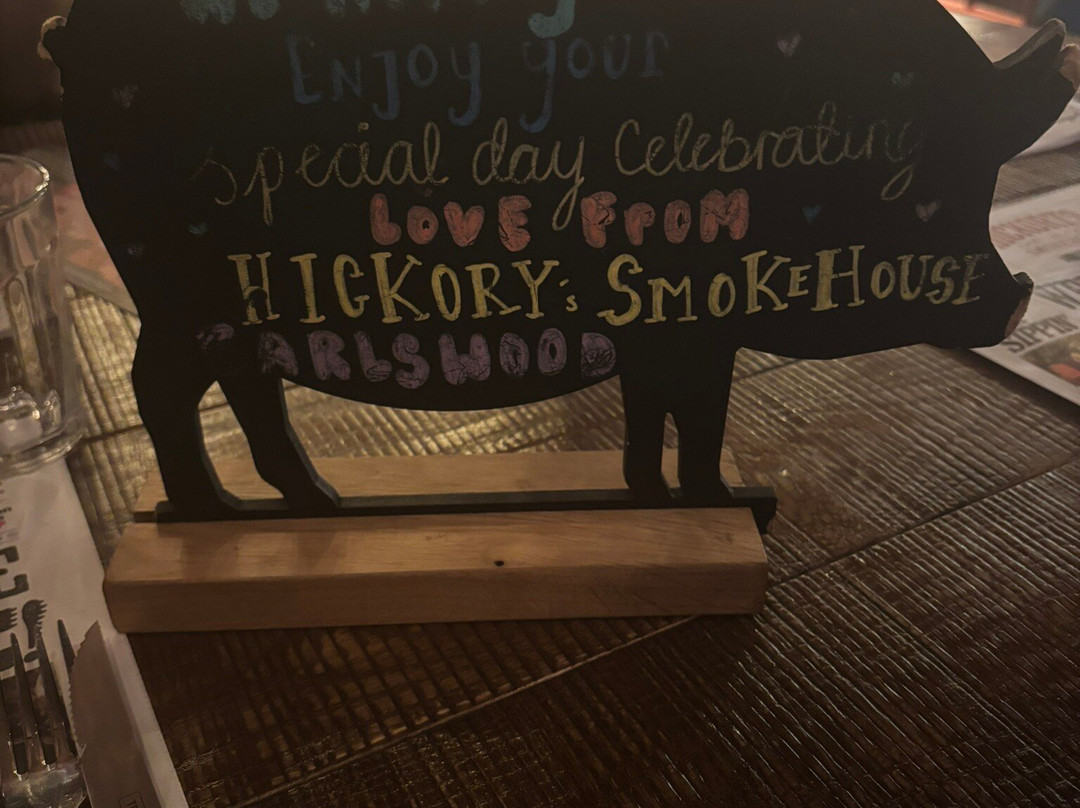 Enjoy your
special day Celebrating
LOVE FROM
HICKORY's SMOKEHOUSE
CARLSWOOD
SIPPIN'